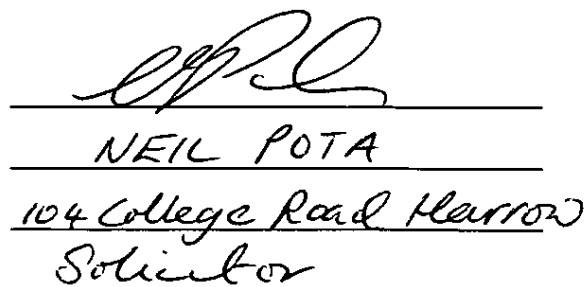 NEIL POTA
104 College Road Harrow
Solicitor